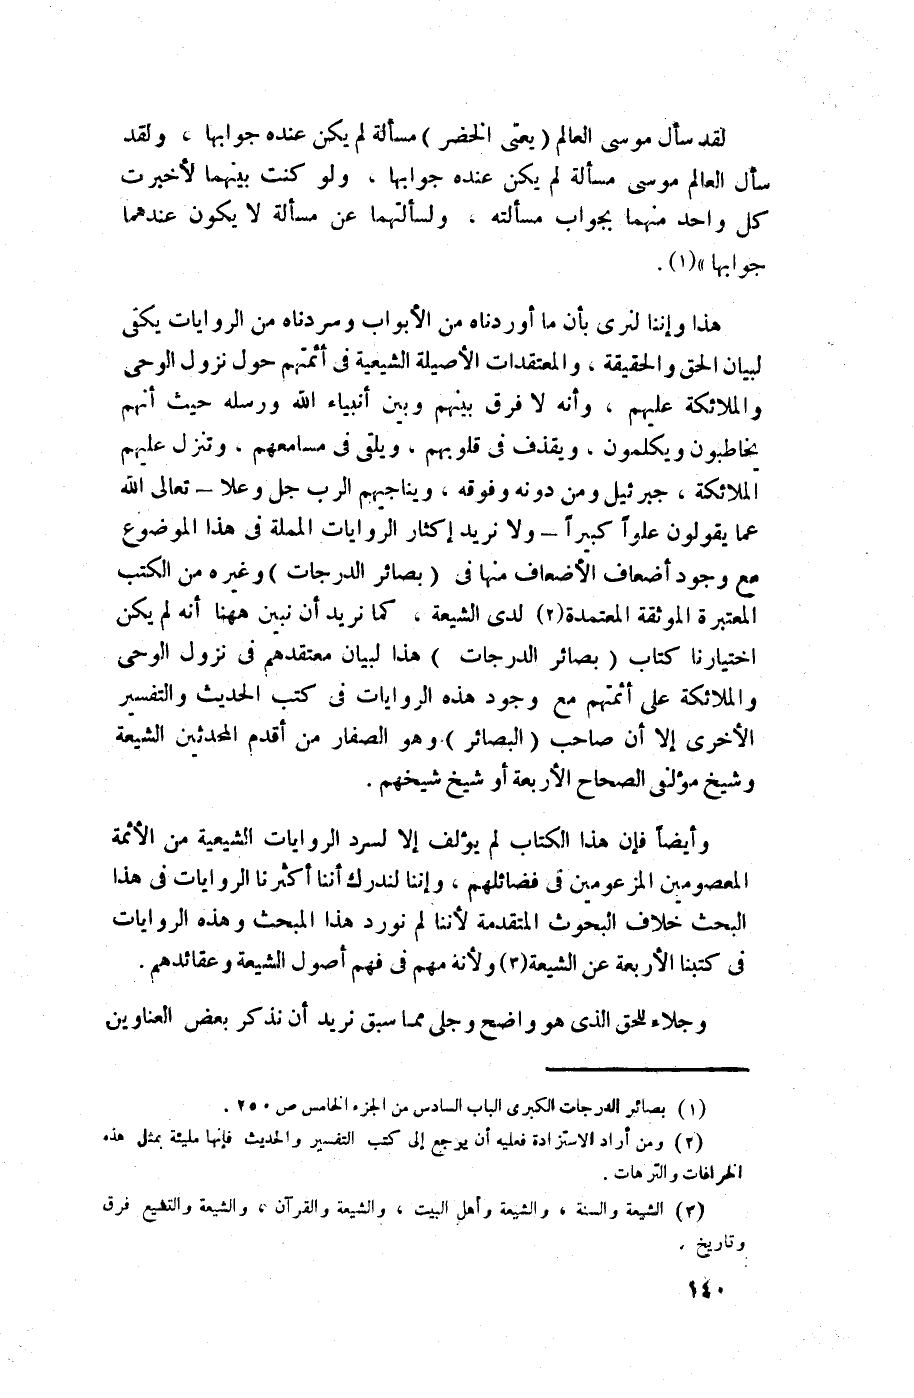 لقد سأل موسى العالم ( يعنى الخضر ) مسألة لم يكن عنده جوابها ، ولقد
سأل العالم موسى مسألة لم يكن عنده جوابها ، ولو كنت بينهما لأخبرت
كل واحد منهما بجواب مسألته ، ولسألتهما عن مسألة لا يكون عندهما
جوابها »(١) .
هذا وإننا لنرى بأن ما أوردناه من الأبواب وسردناه من الروايات يكفى
لبيان الحق والحقيقة ، والمعتقدات الأصيلة الشيعية فى أئمتهم حول نزول الوحى
والملائكة عليهم ، وأنه لا فرق بينهم وبين أنبياء الله ورسله حيث أنهم
يخاطبون ويكلمون ، ويقذف فى قلوبهم ، ويلقى فى مسامعهم ، وتنزل عليهم
الملائكة ، جبرئيل ومن دونه وفوقه ، ويناجيهم الرب جل وعلا – تعالى الله
عما يقولون علواً كبيراً – ولا نريد إكثار الروايات المملة فى هذا الموضوع
مع وجود أضعاف الأضعاف منها فى ( بصائر الدرجات ) وغيره من الكتب
المعتبرة الموثقة المعتمدة(٢) لدى الشيعة ، كما نريد أن نبين ههنا أنه لم يكن
اختيارنا كتاب ( بصائر الدرجات ) هذا لبيان معتقدهم فى نزول الوحى
والملائكة على أئمتهم مع وجود هذه الروايات فى كتب الحديث والتفسير
الأخرى إلا أن صاحب ( البصائر ) وهو الصفار من أقدم المحدثين الشيعة
وشيخ مؤلفى الصحاح الأربعة أو شيخ شيخهم .
وأيضاً فإن هذا الكتاب لم يؤلف إلا لسرد الروايات الشيعية من الأئمة
المعصومين المزعومين فى فضائلهم ، وإننا لندرك أننا أكثرنا الروايات فى هذا
البحث خلاف البحوث المتقدمة لأننا لم نورد هذا المبحث وهذه الروايات
فى كتبنا الأربعة عن الشيعة(٣) ولأنه مهم فى فهم أصول الشيعة وعقائدهم .
وجلاء للحق الذى هو واضح وجلى مما سبق نريد أن نذكر بعض العناوين
(١) بصائر الدرجات الكبرى الباب السادس من الجزء الخامس ص ٢٥٠ .
(٢) ومن أراد الاستزادة فعليه أن يرجع إلى كتب التفسير والحديث فإنها مليئة بمثل هذه
الخرافات والترهات .
(٣) الشيعة والسنة ، والشيعة وأهل البيت ، والشيعة والقرآن ، والشيعة والتشيع فرق
وتاريخ .
١٤٠